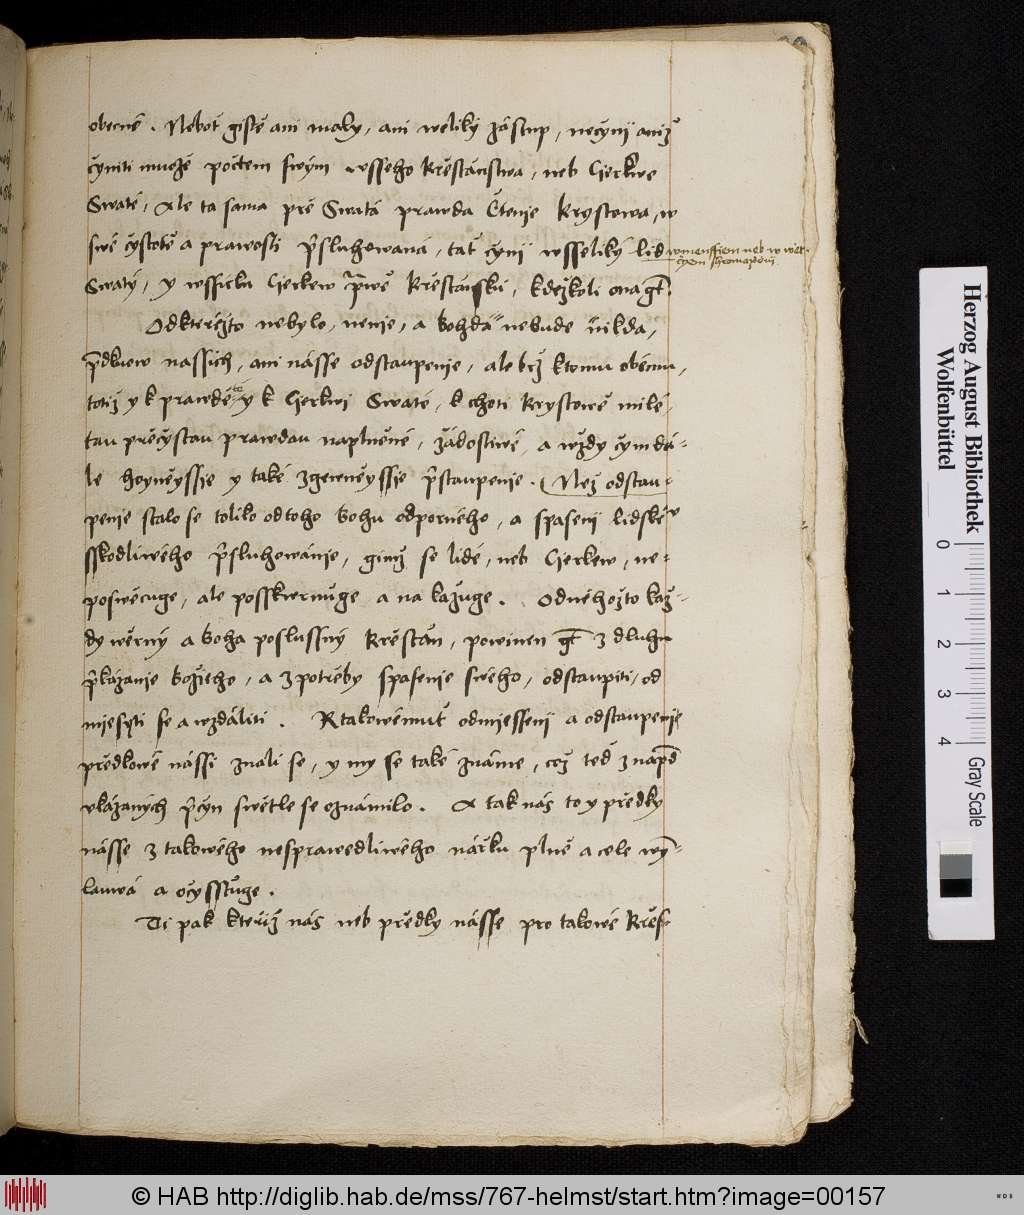 obecné . Neboť gistě ani maly, ani weliký zástup, nečyní aniž
čyniti muože počtem swým wsseho Křěstanstwa, neb Cierkwe
Swaté, Ale ta sama prě Swatá prawda Čtenie Krystowa, w
swé čystotě a prawosti přsluhowaná, tať čyní wsseliký lid
wmenssiem neb w wiet-
čyem shromazdení
Swatý, y wssicku Cierkew prwé Křěstánsků, kdežkoli ona gt.
Odkteréžto nebylo, nenie, a bohdá nebude nikda,
předkuow nassich, ani násse odstaupenie, ale brž ktomu obecnu,
totiž y k prawdě y k Cierkwi Swaté, k choti Krystowě milé,
tau přěčystau prawdau naplněné, žádostiwé, a wždy čym dá-
le hoyněyssie y také zgewněyssie přstaupenie . Než odstau-
penie stalo se toliko od toho bohu odporného, a spasení lidské
sskodliwého přsluhowánie, gimž se lidé, neb Cierkew, ne-
poswěcuge, ale posskwrnuge a nakažuge . Od něhožto kaž-
dy wěrný a boha poslussný Křěsťan, powinen gt z dluhu
přkázanie božieho, a z potřěby spasenie swého, odstaupiti, od
miesyti se a wzdáliti . K takowémuť odmiessení a odstaupenie
přědkowé nássi znali se, y my se také známe, což teď znapřd
vkázaných přčyn swětle se oznámilo . A tak nás to y přědky
násse z takowého nesprawedliwého nářku plně a cele wy-
lauwá a očyssťuge .
Ti pak kteříž nás neb přědky násse pro takowé Křěs-
Herzog August Bibliothek
Wolfenbüttel
0 1 2 3 4
Gray Scale
© HAB http://diglib.hab.de/mss/767-helmst/start.htm?image=00157